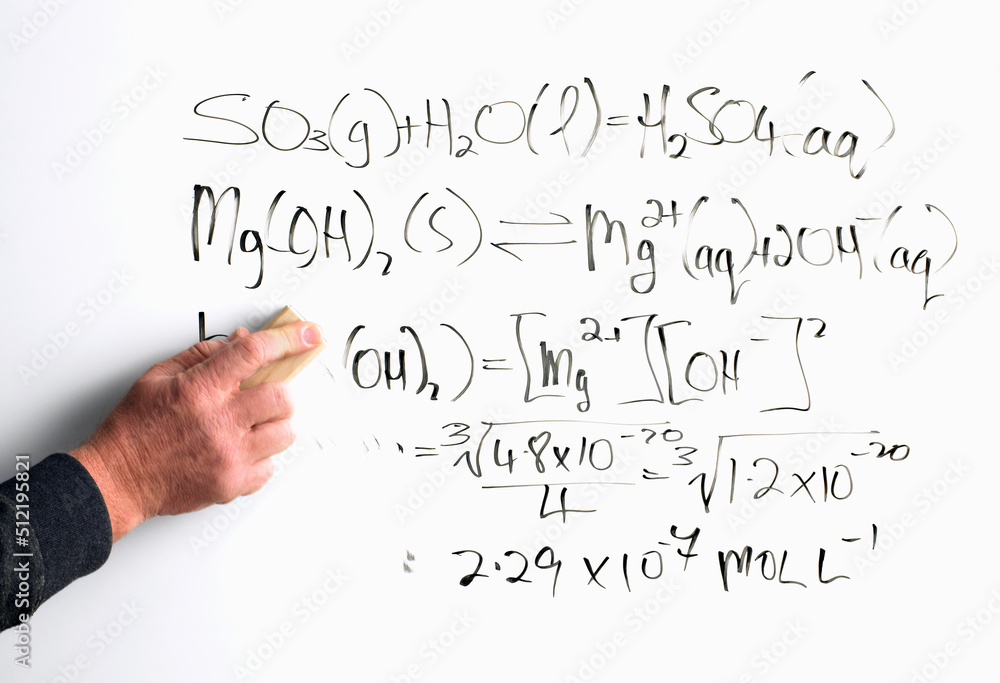 SO₃(g)+H₂O(l)=H₂SO4(aq)
Mg(OH)₂(s) ⇌ Mg²⁺(aq)+2OH⁻(aq)
(OH)₂)=[Mg²⁺][OH⁻]²
=³√4.8×10⁻²⁰/4=³√1.2×10⁻²⁰
2.29×10⁻⁷ MOL L⁻¹
Adobe Stock | #512195821